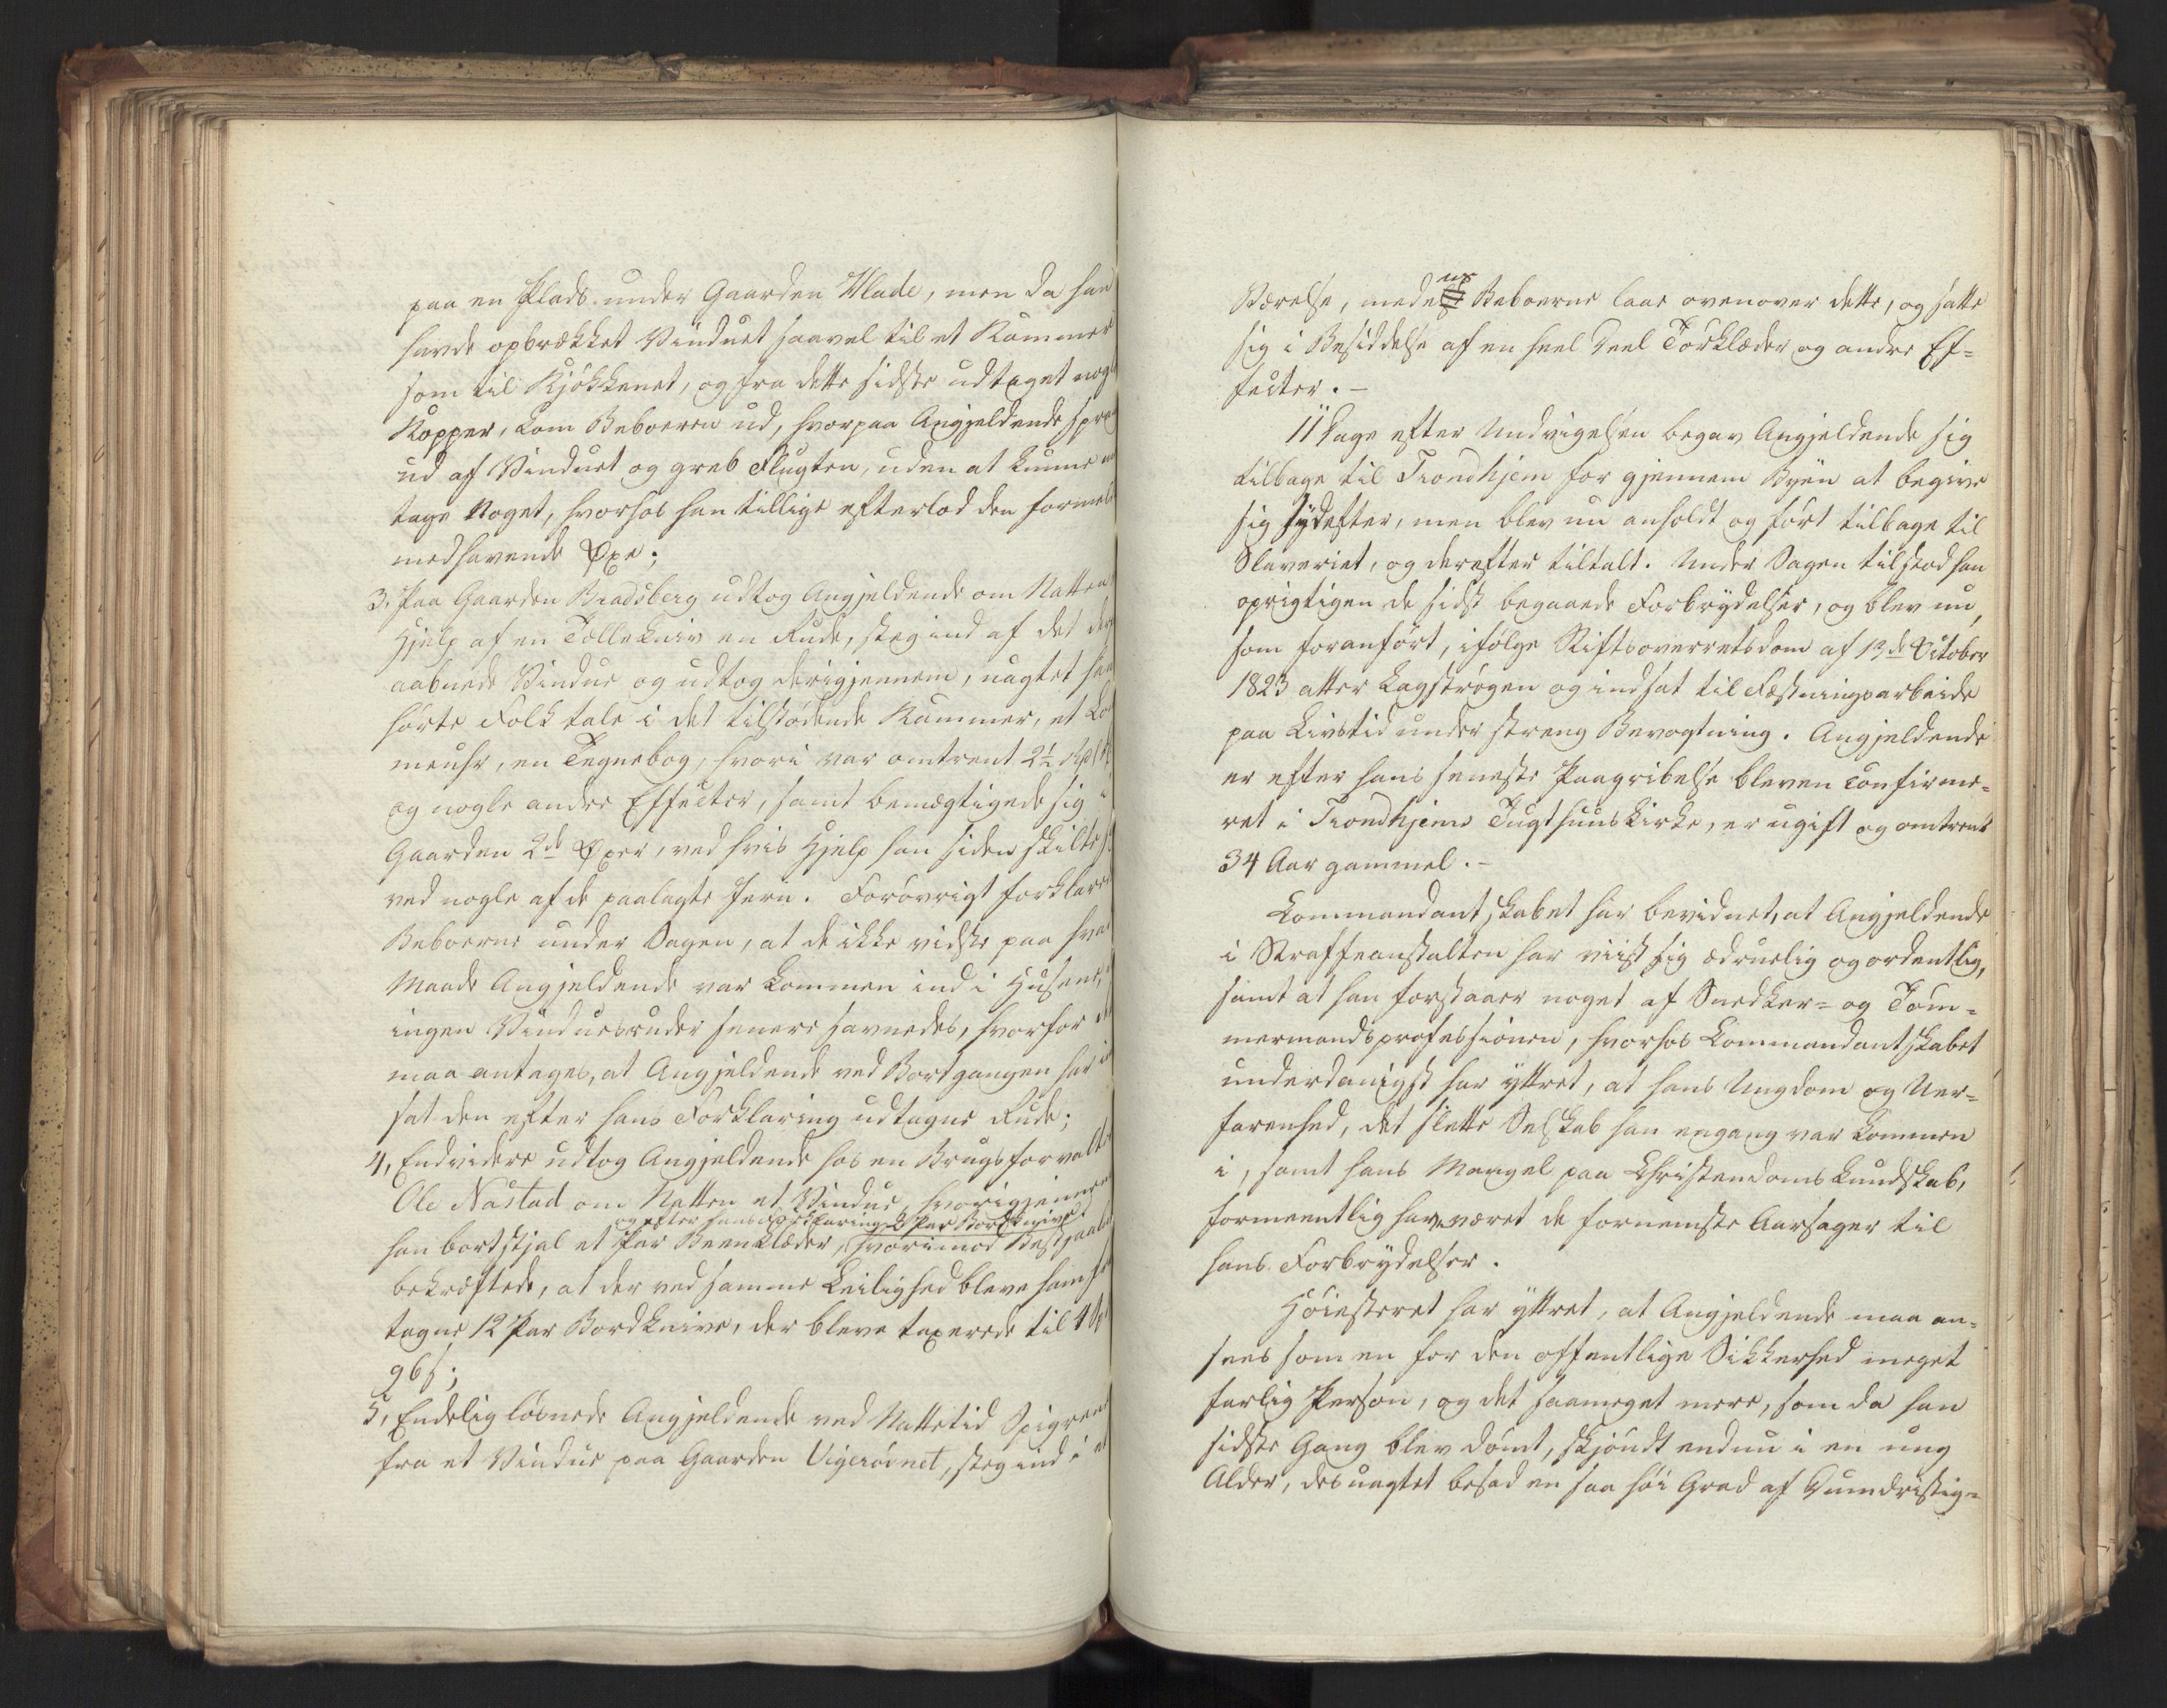 paa en Plads under Gaarden Hlade, men da han
havde opbrækket Vinduet saavel til et Kammer
som til Kjøkkenet, og fra dette sidste udtaget nog
Kopper, kom Beboeren ud, hvorpaa Angjeldende spra
ud af Vinduet og greb Flugten, uden at kunne
tage Noget, hvorhos han tillige efterlod den formeld
medhavende Øxe;
3, Paa Gaarden Bradsberg udtog Angjeldende om Natten
Hjelp af en Tollekniv en Rude, steg ind af det der
aabnede Vindue og udtog derigjennem, uagtet han
hørte Folk tale i det tilstødende Kammer, et Lo
meuhr, en Tegnebog, hvori var omtrent 2½ Spd
og nogle andre Effecter, samt bemægtigede sig i
Gaarden 2de Øxer, ved hvis Hjelp han siden skilte s
ved nogle af de paalagte Jern. Forøvrigt forklared
Beboerne under Sagen, at de ikke vidste paa hvad
Maade Angjeldende var kommen ind i Husene,
ingen Vinduesruder senere savnedes, hvorfor det
maa antages, at Angjeldende ved Bortgangen har i
sat den efter hans Forklaring udtagne Rude;
4, Endvidere udtog Angjeldende hos en Brugsforvalter
Ole Nastad om Natten et Vindue, hvorigjennem
og efter hans Forklaring 2 Par Bordknive
han bortstjal et Par Beenklæder, hvorimod Bestjaalne
bekræftede, at der ved samme Leilighed bleve ham fra
tagne 12 Par Bordknive, der bleve taxerede til 1 Spd
96 s;
5, Endelig løsnede Angjeldende ved Nattetid Spigrene
fra et Vindue paa Gaarden Vigerøvnet, steg ind i et
Værelse, medens Beboerne laae ovenover dette, og satte
sig i Besiddelse af en heel Deel Tørklæder og andre Ef=
fecter. –
11 Dage efter Undvigelsen begav Angjeldende sig
tilbage til Trondhjem for gjennem Byen at begive
sig sydefter, men blev nu anholdt og ført tilbage til
Slaveriet, og derefter tiltalt. Under Sagen tilstod han
oprigtigen de sidst begaaede Forbrydelser, og blev nu,
som foranført, ifølge Stiftsoverretsdom af 13de October
1823 atter kagstrøgen og indsat til Fæstningsarbeide
paa Livstid under streng Bevogtning. Angjeldende
er efter hans seneste Paagribelse bleven confirme=
ret i Trondhjems Tugthuuskirke, er ugift og omtrent
34 Aar gammel. –
Commandantskabet har bevidnet, at Angjeldende
i Straffeanstalten har viist sig ædruelig og ordentlig,
samt at han forstaaer noget af Snedker= og Tøm=
mermandsprofessionen, hvorhos Commandantskabet
underdanigst har yttret, at hans Ungdom og Uer=
farenhed, det slette Selskab han engang var kommen
i, samt hans Mangel paa Christendomskundskab,
formeentlig have været de fornemste Aarsager til
hans Forbrydelser.
Høiesteret har yttret, at Angjeldende maa an=
sees som en for den offentlige Sikkerhed meget
farlig Person, og det saameget mere, som da han
sidste Gang blev dømt, skjøndt endnu i en ung
Alder, desuagtet besad en saa høi Grad af Dumdristig=